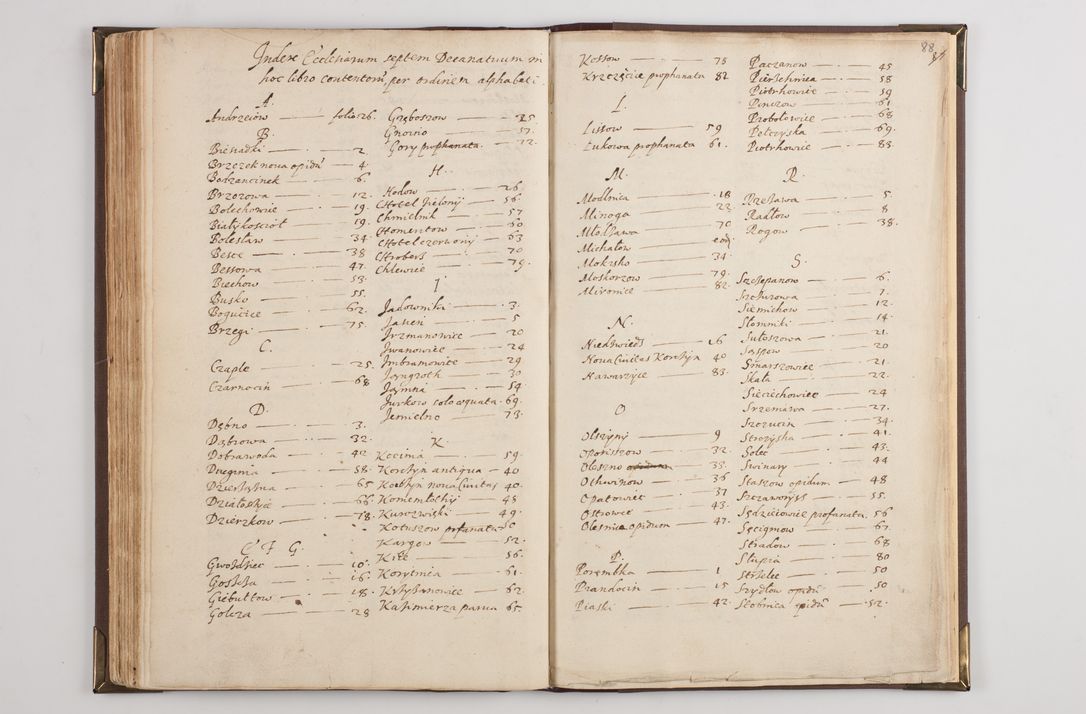 Index Ecclesiarum septem Decanatuum in
hoc libro contentorum per ordinem alphabeti
A.
Andrzeiow folio 26.
B.
Biesiadki 2
Brzezek nova opidu 4
Bodzancinek 6.
Brzozowa 12.
Bolechowie 19.
Białykosciół 19.
Bolesław 34
Besce 38
Bessowa 47.
Biechow 53.
Busko 55.
Bogucice 62.
Brzegi 75.
C.
Czaple 25.
Czarnocin 68
D.
Dębno 3.
Dąbrowa 32.
Dobrawoda 42
Dzierążna 65
Działoszyce 66.
Dzierzkow 78.
E F G.
Gwoździec 10.
Goszcza 16.
Giebułtow 18.
Golcza 28
Gręboszow 35
Gnoyno 57.
Gory prophanata 72.
H.
Hodow 26
Chotel Zielony 56.
Chmielnik 57
Chomentow 60
Chotel czerwony 63
Chrobers 70
Chlewie 79.
I
Jadowniki 3.
Jasień 5
Irzmanowice 20
Iwanowice 24
Imbramowice 29
Jangroth 30
Jasmna 54
Jurkow solo æquata 69.
Jemielno 73.
K.
Kocima 59.
Korczyn antiqua 40
Korczyn nova Civitas 40.
Komemłothy 48
Kurozwęki 49.
Kotuszow profanata 50
Kargow 52.
Kiie 56.
Korytnia 61.
Krzyżanowice 62.
Kazimierza parva 65.
88
Kossow 75
Krzczęcice prophanata 82
L.
Lissow 59
Łukowa prophanata 61.
M.
Modlnica 18
Minoga 22.
Młodzawa 70
Michałow eod.
Mokrsko 34
Moskorzow 79.
Mironice 82.
N.
Niedzwiedź 16
Nova Civitas Korczyn 40
Nawarzyce 83.
O
Olszyny 9
Oponiszow 32.
Oleszno 35.
Othwinow 36
Opatowiec 37
Ostrowce 43.
Olesnica opidum 47.
P.
Porembka 1
Prandocin 15
Piaski 42.
Paczanow 45
Pierschnica 58
Piotrkowice 59
Pinczow 61
Probołowice 68
Pełczyska 69.
Piotrkowice 83.
R.
Rzezawa 5
Radłow 8
Rogow 38.
S.
Szczepanow 6.
Szczurowa 7.
Siemichow 12.
Słomniki 14.
Sułoszowa 21.
Sąspow 20
Smarszowice 21.
Skała 22.
Sieciechowice 24
Srzeniawa 27.
Szczucin 34.
Strożyska 41.
Solec 43.
Swinary 44
Staszow opidum 48
Szczaworysz 55.
Sędzieiowice profanata 56
Sęcigniow 67.
Stradow 68
Słupia 80
Strzelce 50
Szydłow opidu 50
Stobnica opidu 52.